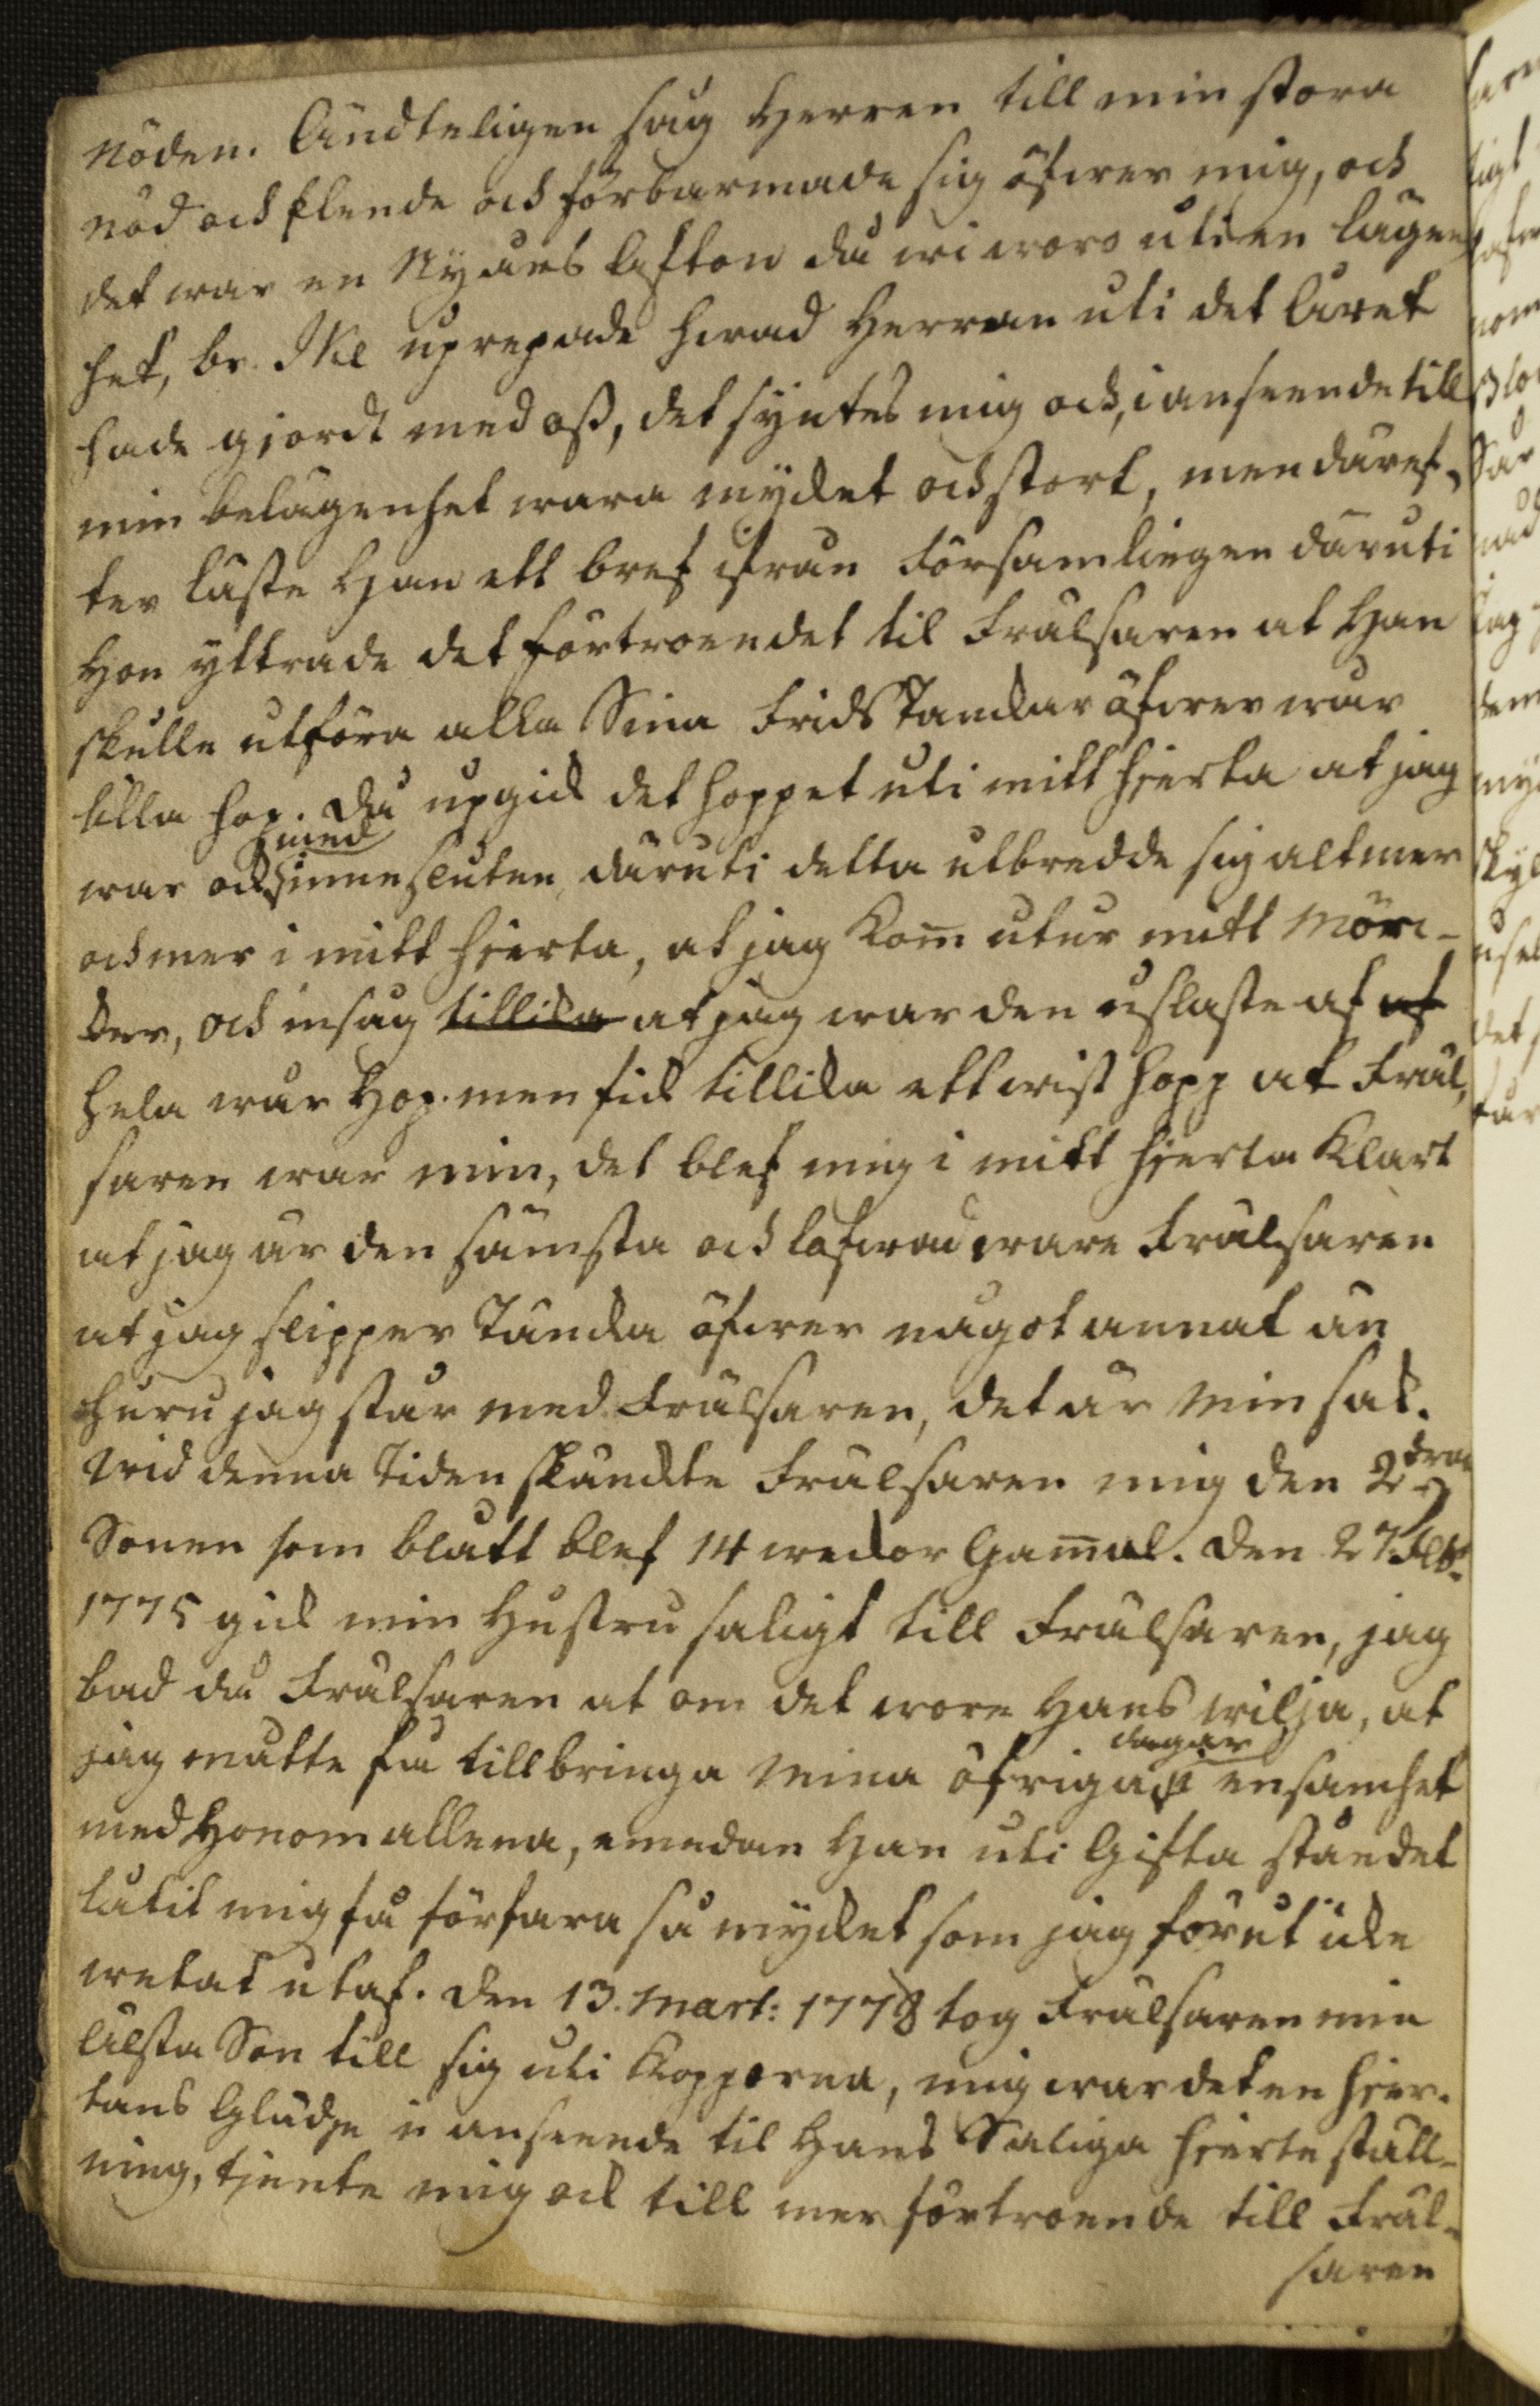 nöden. Ändteligen såg Herren till min stora
nöd och Elende och förbarmade sig öfwer mig, och
det war en Nyårs Afton då wi woro uti en lägen
het, br. upprepade hwad Herren uti det Året
hade gjordt med oss, det syntes mig och, i anseende till
min belägenhet wara mycket och stort, men däref„
ter läste Han ett bref ifrån Församlingen däruti
Hon yttrade det förtroendet til Frälsaren at Han
skulle utföra alla Sina Frids Tanckar öfwer wår
lilla hop. Då upgick det hoppet uti mitt hjerta at jag
med
war och innesluten, däruti detta utbredde sig altmer
och mer i mitt hjerta, at jag Kom̄ utur mitt Mör-
cker, och insåg tillicka at jag war den uslaste af af
hela wår Hop. men fick tillicka ett wist hopp at Fräl„
saren war min, det blef mig i mitt hjerta Klart
at jag är den sämsta och lofwad ware Frälsaren
at jag slipper Täncka öfwer något annat än
huru jag står med Frälsaren, det är Min sak.
Wid denna Tiden skänckte Frälsaren mig den 2dra
Sonen som blått blef 14 weckor Gam̄al. Den 27
1775 gick min Hustru saligt till Frälsaren, jag
bad då Frälsaren at om det wore Hans wilja, at
dagar
jag måtte få tillbringa Mina öfriga i ensamhet
med Honom allena, emedan Han uti Gifta ståndet
låtit mig få förfara så mycket som jag förut icke
wetat utaf. Den 13. Mart: 1778 tog Frälsaren min
älsta Son till sig uti Kopporna, mig war det en hjer-
tans Glädje i anseende til Hans Saliga hjerte ställ-
ning, tjente mig och till mer förtroende till Fräl-
saren